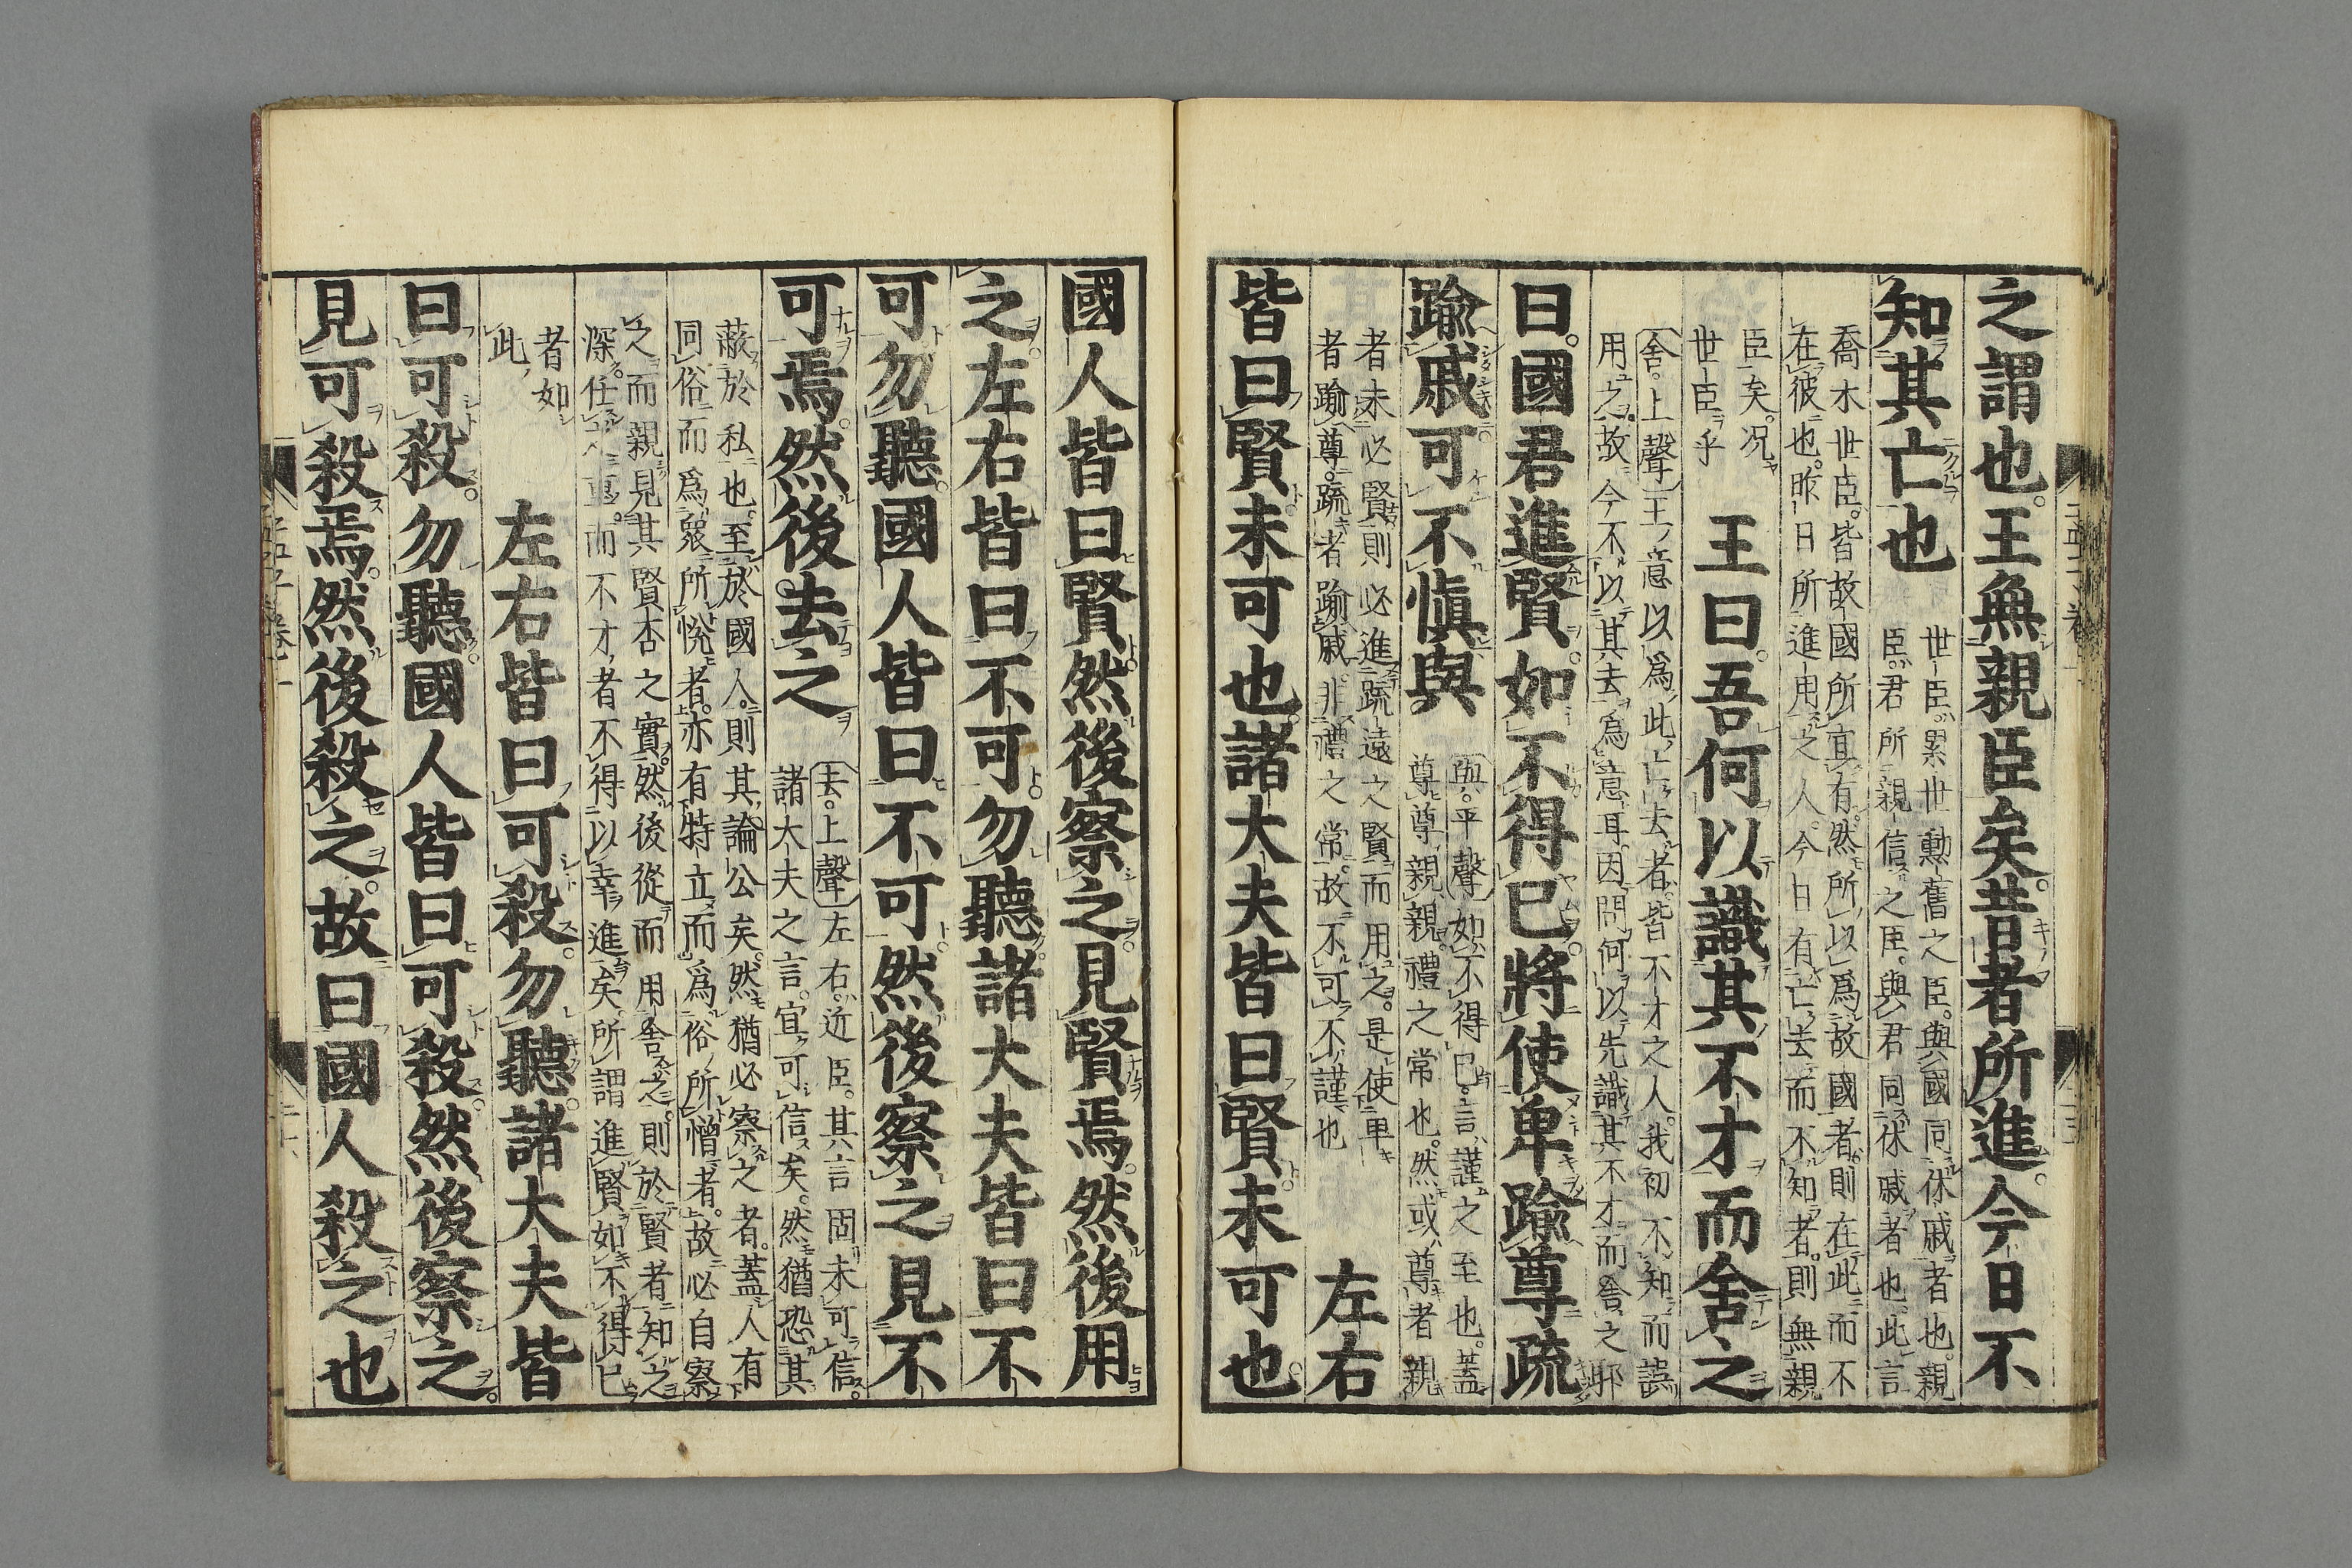 之謂也王無親臣矣昔者所進今日不
知其亡也
世臣累世勳舊之臣與國同休戚者也親
臣君所親信之臣與君同休戚者也此言
喬木世臣皆故國所宜有然所以爲故國者則在此而不
在彼也昨日所進用之人今日有亡去而不知者則無親
臣矣况
世臣乎
王曰吾何以識其不才而舍之
舍上聲王意以爲此亡去者皆不才之人我初不知而誤
用之故今不以其去爲意耳因問何以先識其不才而舍之耶
曰國君進賢如不得已將使卑踰尊疏
踰戚可不愼與
與平聲如不得已言謹之至也蓋
尊尊親親禮之常也然或尊者親
者未必賢則必進疏遠之賢而用之是使卑
者踰尊疏者踰戚非禮之常故不可不謹也
左右
皆曰賢未可也諸大夫皆曰賢未可也
國人皆曰賢然後察之見賢焉然後用
之左右皆曰不可勿聽諸大夫皆曰不
可勿聽國人皆曰不可然後察之見不
可焉然後去之
去上聲左右近臣其言固未可信
諸大夫之言宜可信矣然猶恐其
蔽於私也至於國人則其論公矣然猶必察之者蓋人有
同俗而爲衆所悅者亦有特立而爲俗所憎者故必自察
之而親見其賢否之實然後從而用舍之則於賢者知之
深任之重而不才者不得以幸進矣所謂進賢如不得已
者如
此
左右皆曰可殺勿聽諸大夫皆
曰可殺勿聽國人皆曰可殺然後察之
見可殺焉然後殺之故曰國人殺之也